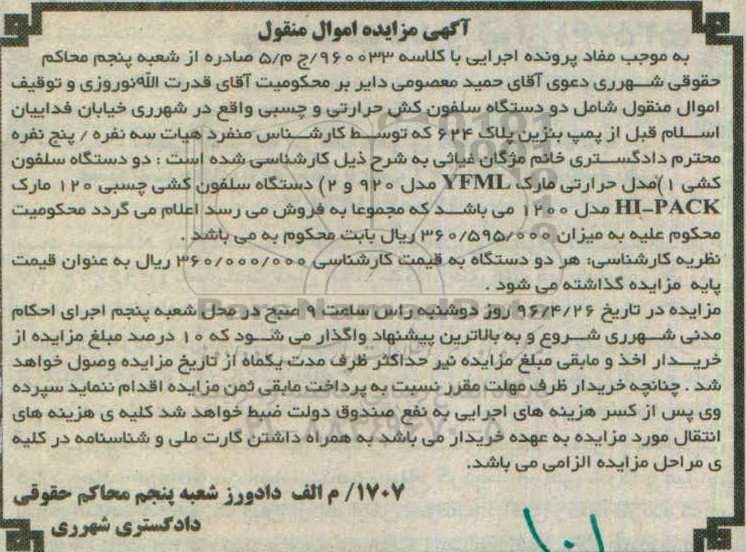 آگهی مزایده اموال منقول
به موجب مفاد پرونده اجرایی با کلاسه ۹۶۰۰۳۳/ج م/۵ صادره از شعبه پنجم محاکم
حقوقی شهرری دعوی آقای حمید معصومی دایر بر محکومیت آقای قدرت الله نوروزی و توقیف
اموال منقول شامل دو دستگاه سلفون کش حرارتی و چسبی واقع در شهرری خیابان فداییان
اسلام قبل از پمپ بنزین پلاک ۶۲۴ که توسط کارشناس منفرد هیات سه نفره / پنج نفره
محترم دادگستری خانم مژگان غیاثی به شرح ذیل کارشناسی شده است : دو دستگاه سلفون
کشی ۱)مدل حرارتی مارک YFML مدل ۹۲۰ و ۲) دستگاه سلفون کشی چسبی ۱۲۰ مارک
HI-PACK مدل ۱۲۰۰ می باشد که مجموعا به فروش می رسد اعلام می گردد محکومیت
محکوم علیه به میزان ۳۶۰/۵۹۵/۰۰۰ ریال بابت محکوم به می باشد .
نظریه کارشناسی: هر دو دستگاه به قیمت کارشناسی ۳۶۰/۰۰۰/۰۰۰ ریال به عنوان قیمت
پایه مزایده گذاشته می شود .
مزایده در تاریخ ۹۶/۴/۲۶ روز دوشنبه راس ساعت ۹ صبح در محل شعبه پنجم اجرای احکام
مدنی شهرری شروع و به بالاترین پیشنهاد واگذار می شود که ۱۰ درصد مبلغ مزایده از
خریدار اخذ و مابقی مبلغ مزایده نیز حداکثر ظرف مدت یکماه از تاریخ مزایده وصول خواهد
شد . چنانچه خریدار ظرف مهلت مقرر نسبت به پرداخت مابقی ثمن مزایده اقدام ننماید سپرده
وی پس از کسر هزینه های اجرایی به نفع صندوق دولت ضبط خواهد شد کلیه ی هزینه های
انتقال مورد مزایده به عهده خریدار می باشد به همراه داشتن کارت ملی و شناسنامه در کلیه
ی مراحل مزایده الزامی می باشد.
۱۷۰۷/ م الف دادورز شعبه پنجم محاکم حقوقی
دادگستری شهرری